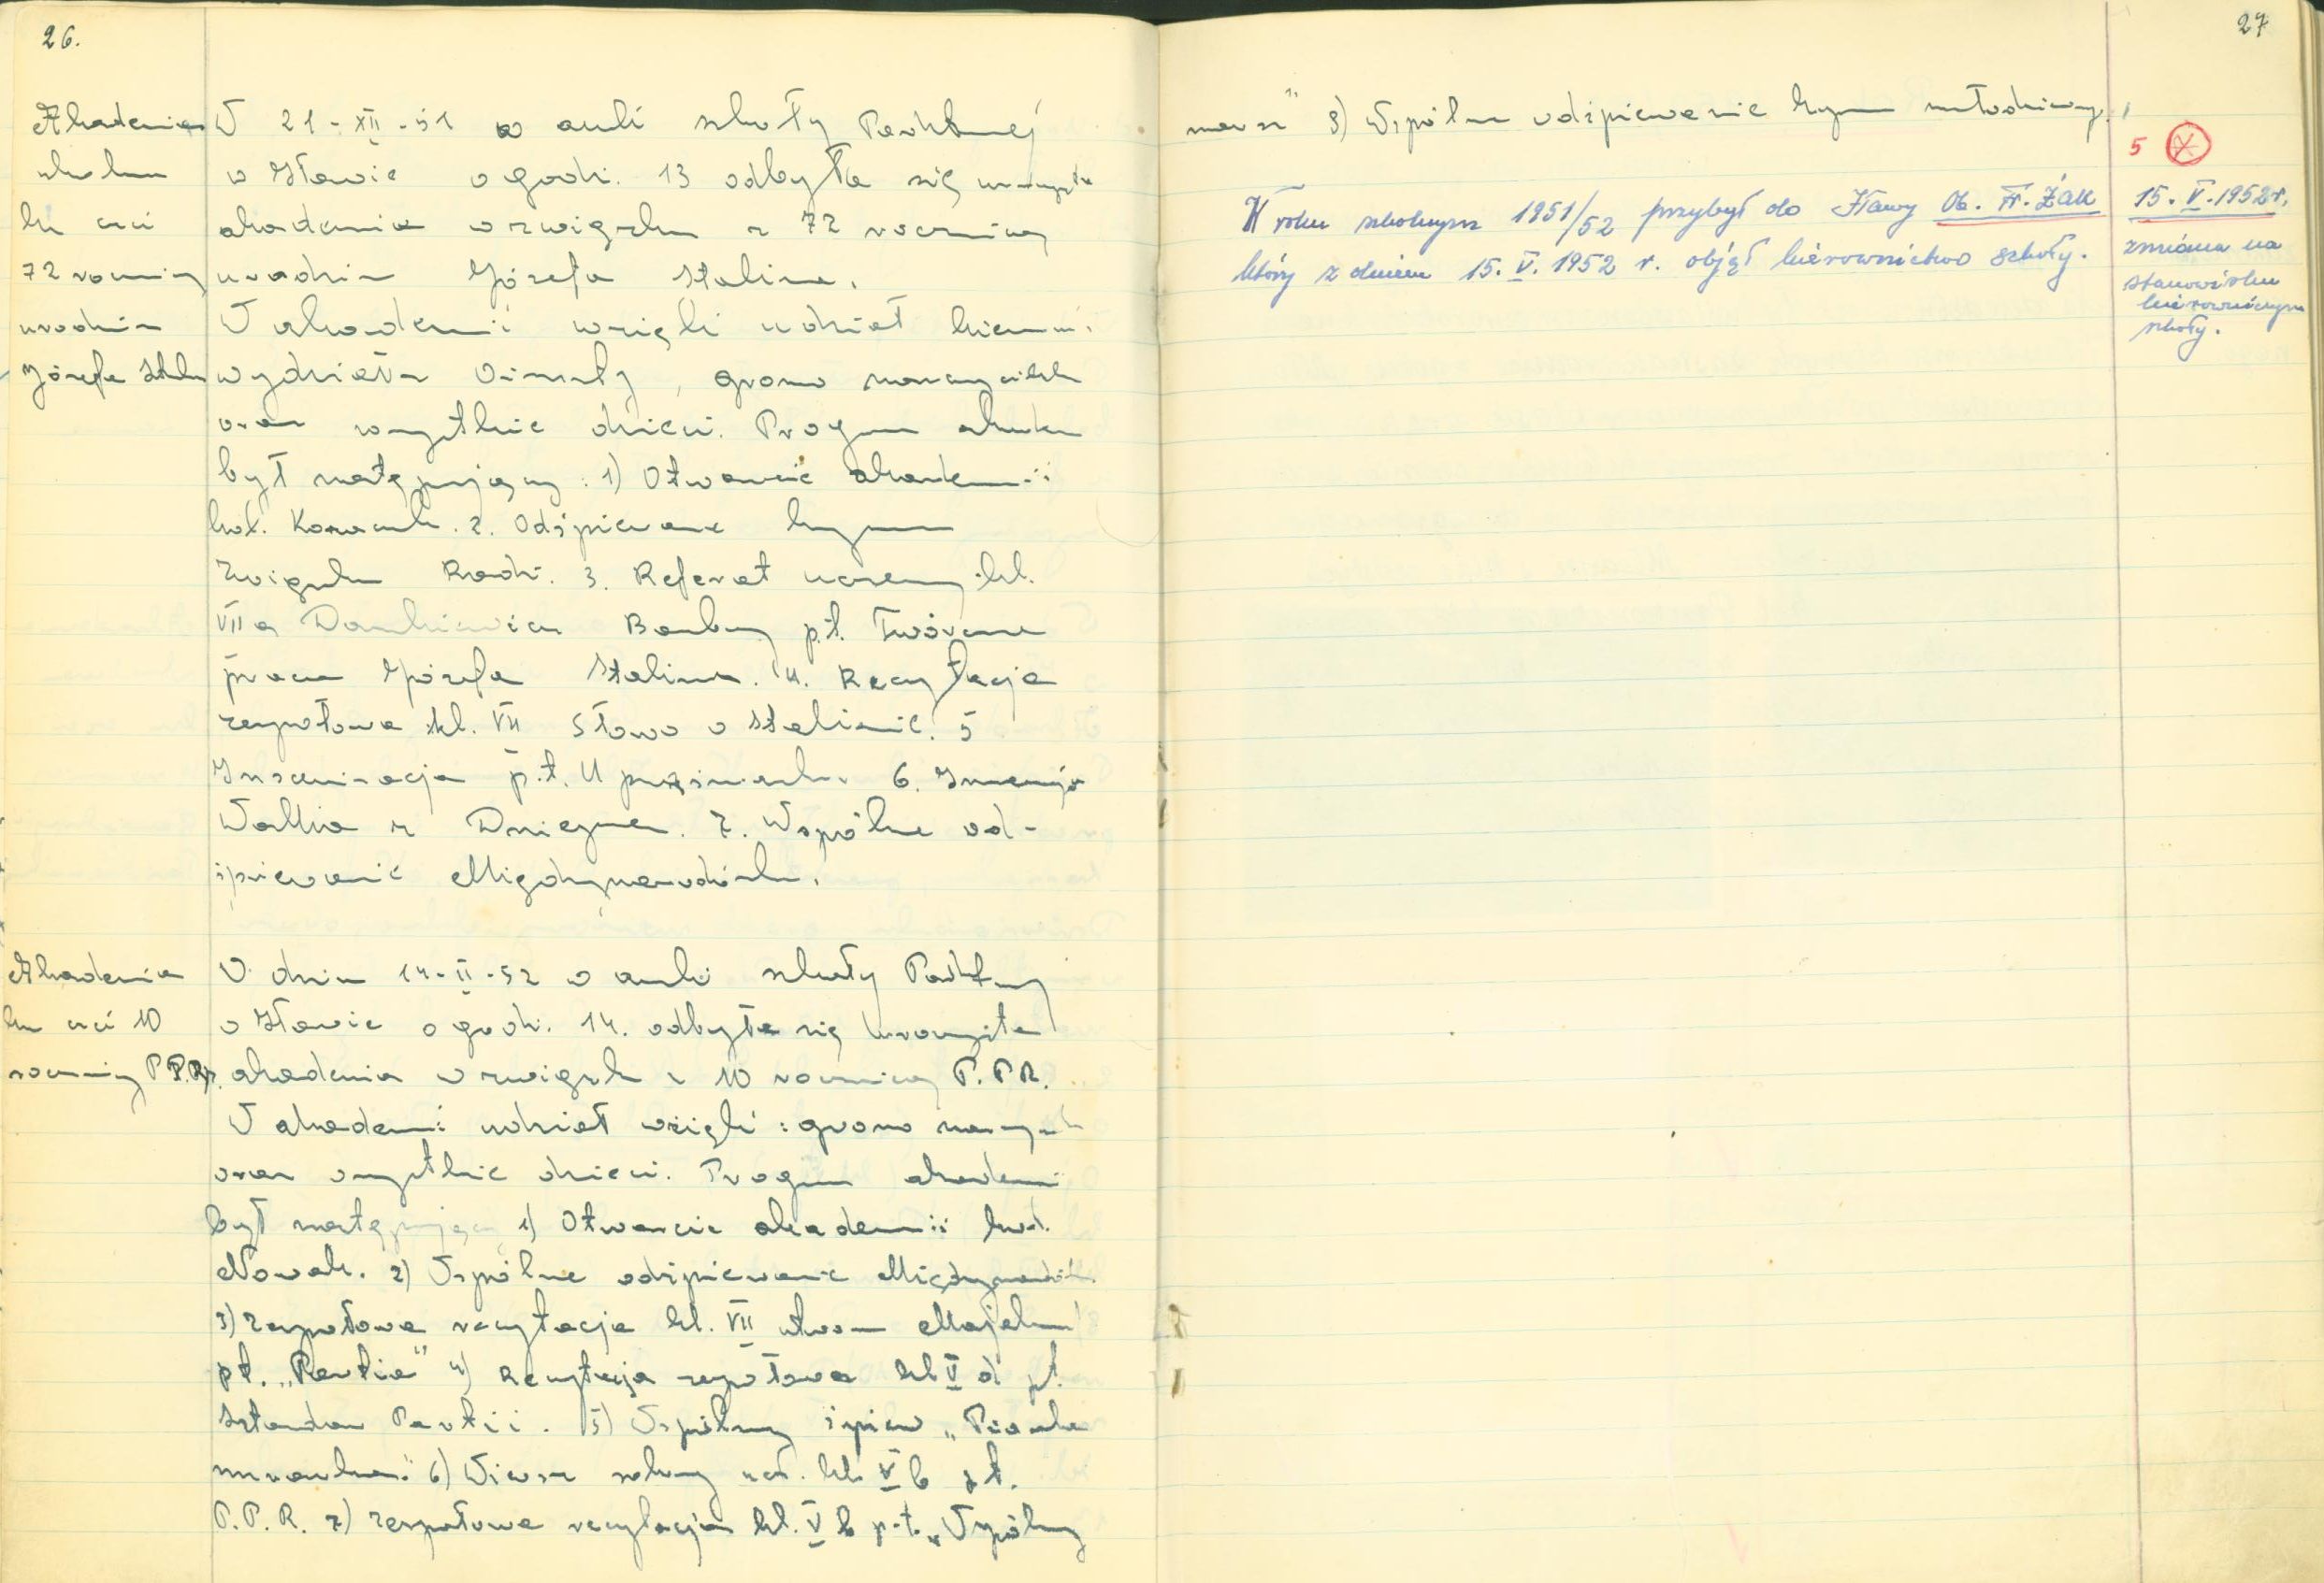 26.
Akademia
szkolna
ku czci
72 rocznicy
urodzin
Józefa Stalina
W 21-XII-51 w auli szkoły Podstawowej
w Iławie o godz. 13 odbyła się uroczysta
akademia w związku z 72 rocznicą
urodzin Józefa Stalina.
W akademii wzięli udział kierown.
wydziału Oświaty, grono nauczycielskie
oraz wszystkie dzieci. Program akademii
był następujący: 1) Otwarcie akademii
2. Odśpiewanie hymnu
Związku Radz. 3. Referat uczennicy kl.
VII a Barbary p.t. Twórcza
praca Józefa Stalina. 4. Recytacja
zespołowa kl. VII Słowo o Stalinie. 5
Inscenizacja p.t. U 6. Inscenizacja
Walka z 7. Wspólne od-
śpiewanie Międzynarodówki.
Akademia
ku czci 10
rocznicy P.P.R.
W dniu 14-II-52 w auli szkoły Podstawowej
w Iławie o godz. 14. odbyła się uroczysta
akademia w związku z 10 rocznicą P.P.R.
W akademii udział wzięli: grono nauczyciels.
oraz wszystkie dzieci. Program akademii
był następujący 1) Otwarcie akademii
Nowak. 2) Wspólne odśpiewanie Międzynarodówki
3) Zespołowa recytacja kl. VII utworu
pt. „Partia" 4) Recytacja zespołowa kl V d pt.
Sztandar Partii. 5) Wspólny śpiew „Piosenka
murarska." 6) Wiersz kl. V b pt.
P.P.R. 7) Zespołowa recytacja kl. V b p.t. „Wspólny
27
marsz" 8) Wspólne odśpiewanie hymnu młodzieży.
5
W roku szkolnym 1951/52 przybył do Iławy Ob. Fr. Żak
który z dniem 15. V. 1952 r. objął kierownictwo szkoły.
15. V. 1952 r.
zmiana na
stanowisku
kierowniczym
szkoły.